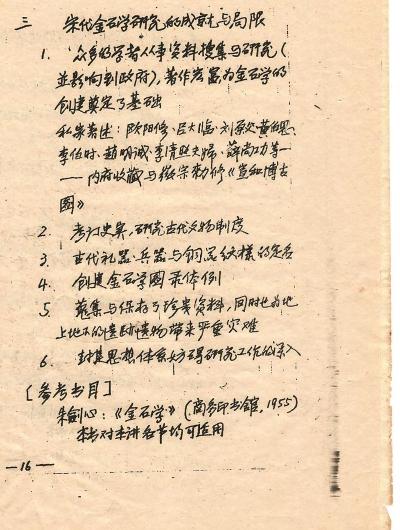 三 宋代金石学研究的成就与局限
1. 众多的学者从事资料搜集与研究(
並影响到政府),著作宏富为金石学的
创建奠定了基础
私家著述:欧阳修、吕大临、刘原父、黄伯思、
李伯时、赵明诚、李清照夫婦、薛尚功等一
——内府收藏与徽宗勅修《宣和博古
图》
2. 考订史实,研究古代文物制度
3. 古代礼器、兵器与铜器纹样的定名
4. 创造金石学图录体例
5. 蒐集与保存了珍贵资料,同时也为地
上地下的遗跡遗物带来严重灾难
6. 封建思想体系妨碍研究工作的深入
[参考书目]
朱剑心:《金石学》(商务印书館,1955)
本书对本讲各节均可适用
—16—